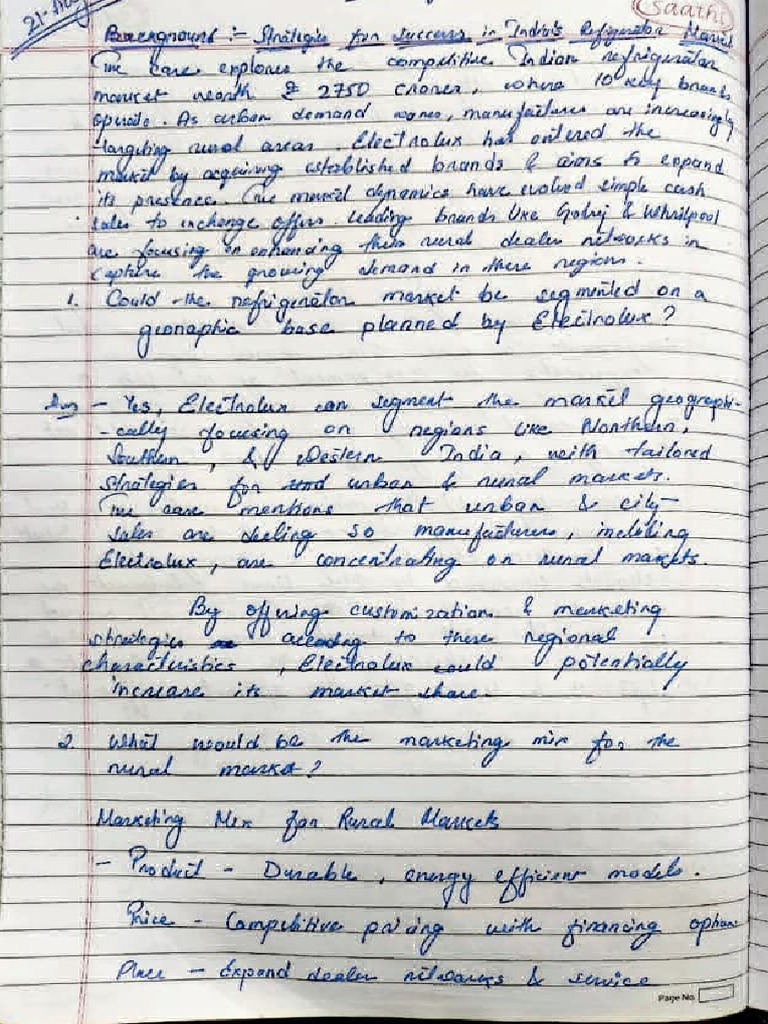 21-Aug
Saathi
Background :- Strategies for success in India's Refrigerator Market
The case explores the competitive Indian refrigerator
market worth ₹ 2750 crores, where 10 key brands
operate. As urban demand wanes, manufactures are increasingly
targeting rural areas. Electrolux has entered the
market by acquiring established brands & aims to expand
its presence. The market dynamics have evolved simple cash
sales to exchange offers. Leading brands like Godrej & Whirlpool
are focusing on enhancing their rural dealer networks in
capture the growing demand in these regions.
1. Could the refrigerator market be segmented on a
geographic base planned by Electrolux?
Ans - Yes, Electrolux can segment the market geographi-
-cally focusing on regions like Northern,
Southern, & Western India, with tailored
strategies for urban & rural markets.
The case mentions that urban & city-
sales are so manufacturers, including
Electrolux, are concentrating on rural markets.
By offering customization & marketing
strategies according to these regional
characteristics, Electrolux could potentially
increase its market share.
2. What would be the marketing mix for the
rural market?
Marketing Mix for Rural Markets
- Product - Durable, energy efficient models.
Price - Competitive pricing with financing options
Place - Expand dealer networks & service
Page No.